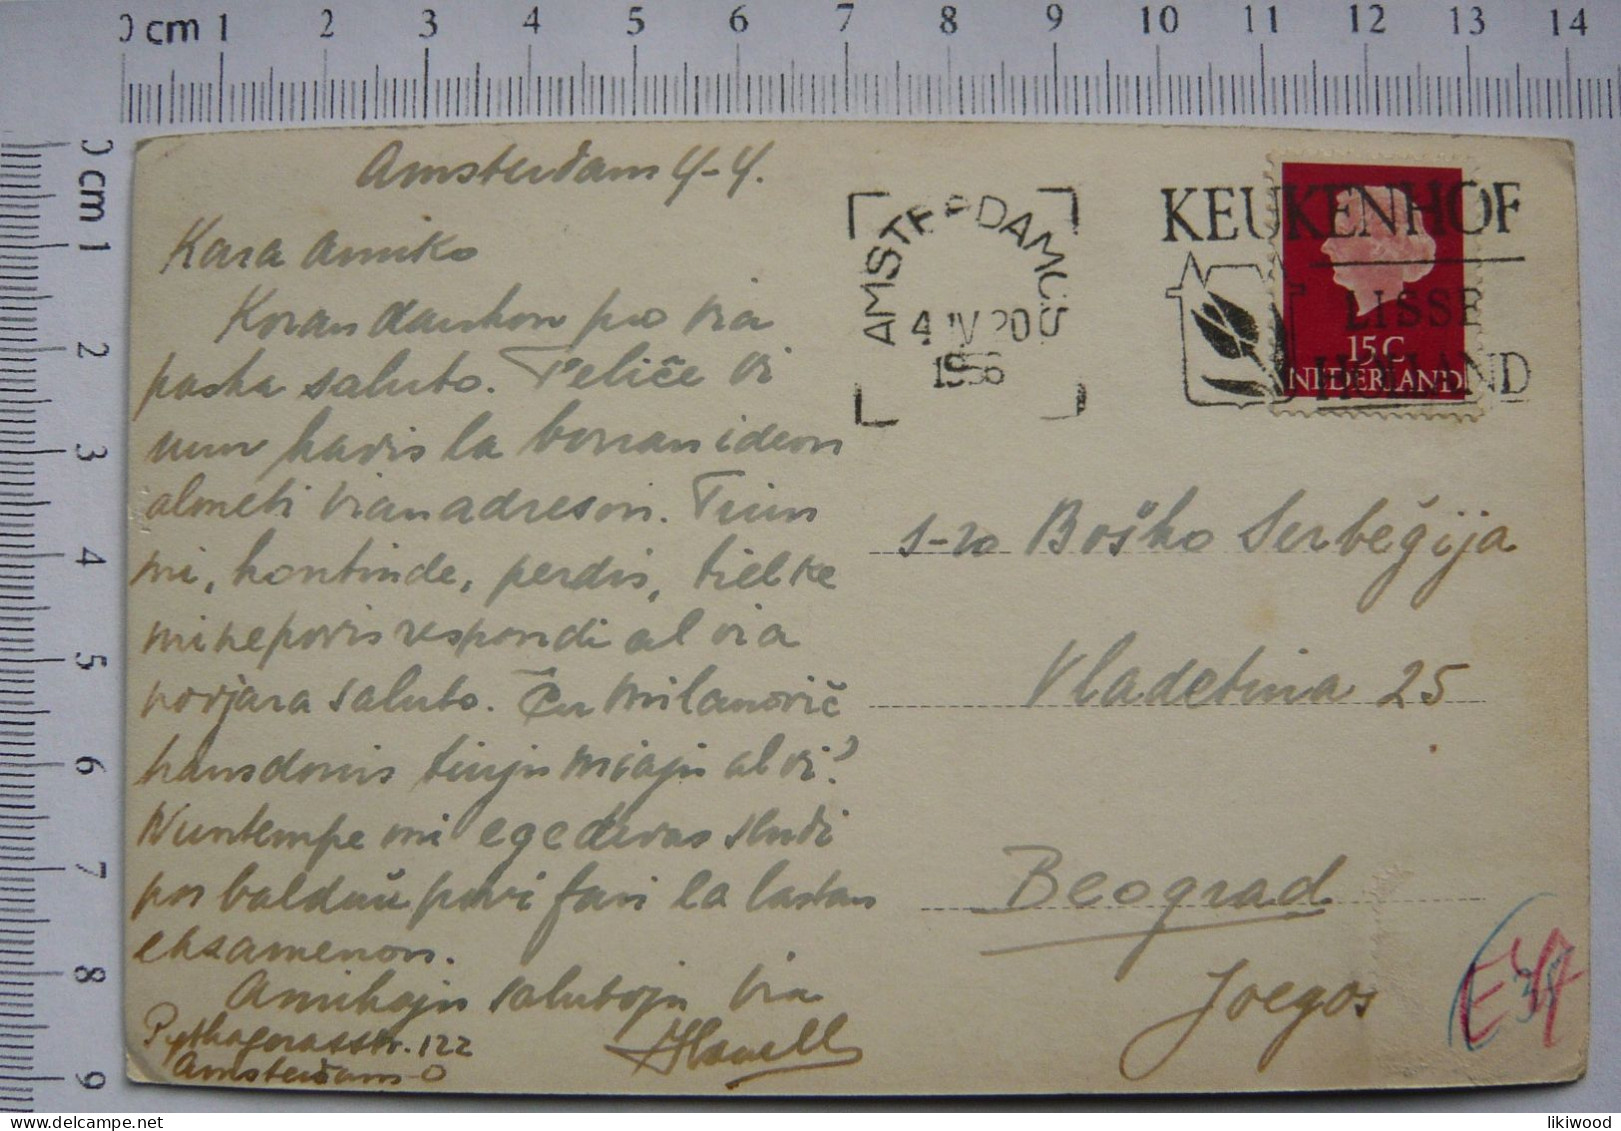 0 cm 1 2 3 4 5 6 7 8 9 10 11 12 13 14
0 cm 1 2 3 4 5 6 7 8 9
Amsterdam 4-4.
Kara Amiko
Koran dankon pro via
paska saluto. Feliĉe vi
nun havis la bonan ideon
almeti vian adreson. Tiun
mi, kontinde, perdis, tiel ke
mi ne povis respondi al via
novjara saluto. Ĉu Milanoviĉ
transdonis tiujn miajn al vi?
Nuntempe mi ege devas studi
por baldaŭ povi fari la lastan
eksamenon.
Amikajn salutojn Via
Pythagorasstr. 122
Amsterdam-O
AMSTERDAM CS
4 IV 20
1956
KEUKENHOF
LISSE
HOLLAND
15 C
NEDERLAND
s-ro Boško Serbeĝija
Vladetina 25
Beograd
Joegos
likiwood